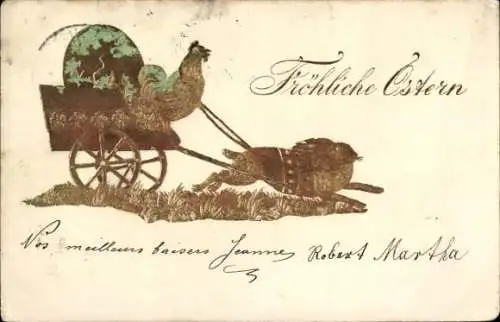 Fröhliche Ostern
Nos meilleurs baisers Jeanne Robert Martha